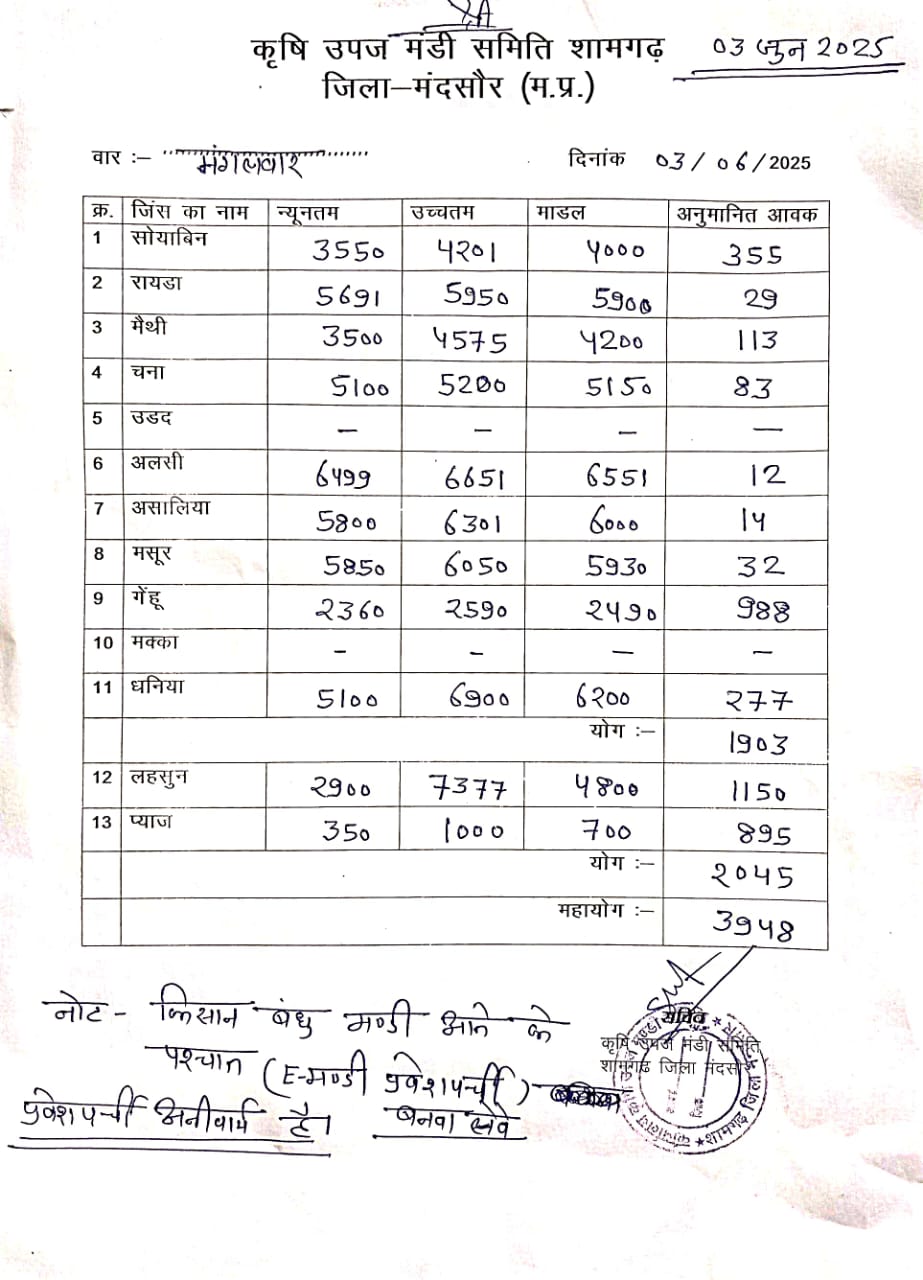 श्री
कृषि उपज मंडी समिति शामगढ़ 03 जुन 2025
जिला–मंदसौर (म.प्र.)
वार :– मंगलवार दिनांक 03/06/2025
क्र. जिंस का नाम न्यूनतम उच्चतम माडल अनुमानित आवक
1 सोयाबिन 3550 4201 4000 355
2 रायडा 5691 5950 5900 29
3 मैथी 3500 4575 4200 113
4 चना 5100 5200 5150 83
5 उडद – – – –
6 अलसी 6499 6651 6551 12
7 असालिया 5800 6301 6000 14
8 मसूर 5850 6050 5930 32
9 गेंहू 2360 2590 2490 988
10 मक्का – – – –
11 धनिया 5100 6900 6200 277
योग :– 1903
12 लहसुन 2900 7377 4800 1150
13 प्याज 350 1000 700 895
योग :– 2045
महायोग :– 3948
नोट - किसान बंधु मण्डी आने के
पश्चात (E-मण्डी प्रवेशपर्ची)
बनवा लेवे
प्रवेशपर्ची अनीवार्य है।
सचिव
कृषि उपज मंडी समिति
शामगढ जिला मंदसौर